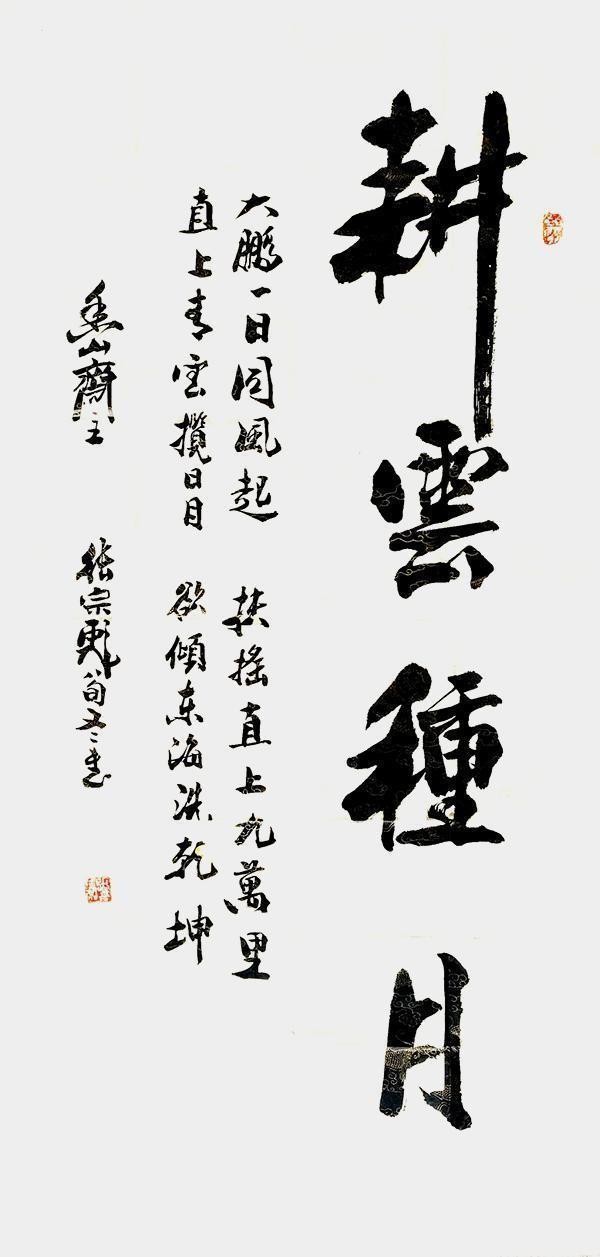 耕雲種月
大鵬一日同風起 扶摇直上九萬里
直上青雲攬日月 欲傾東海洗乾坤
山齋主 張宗彪